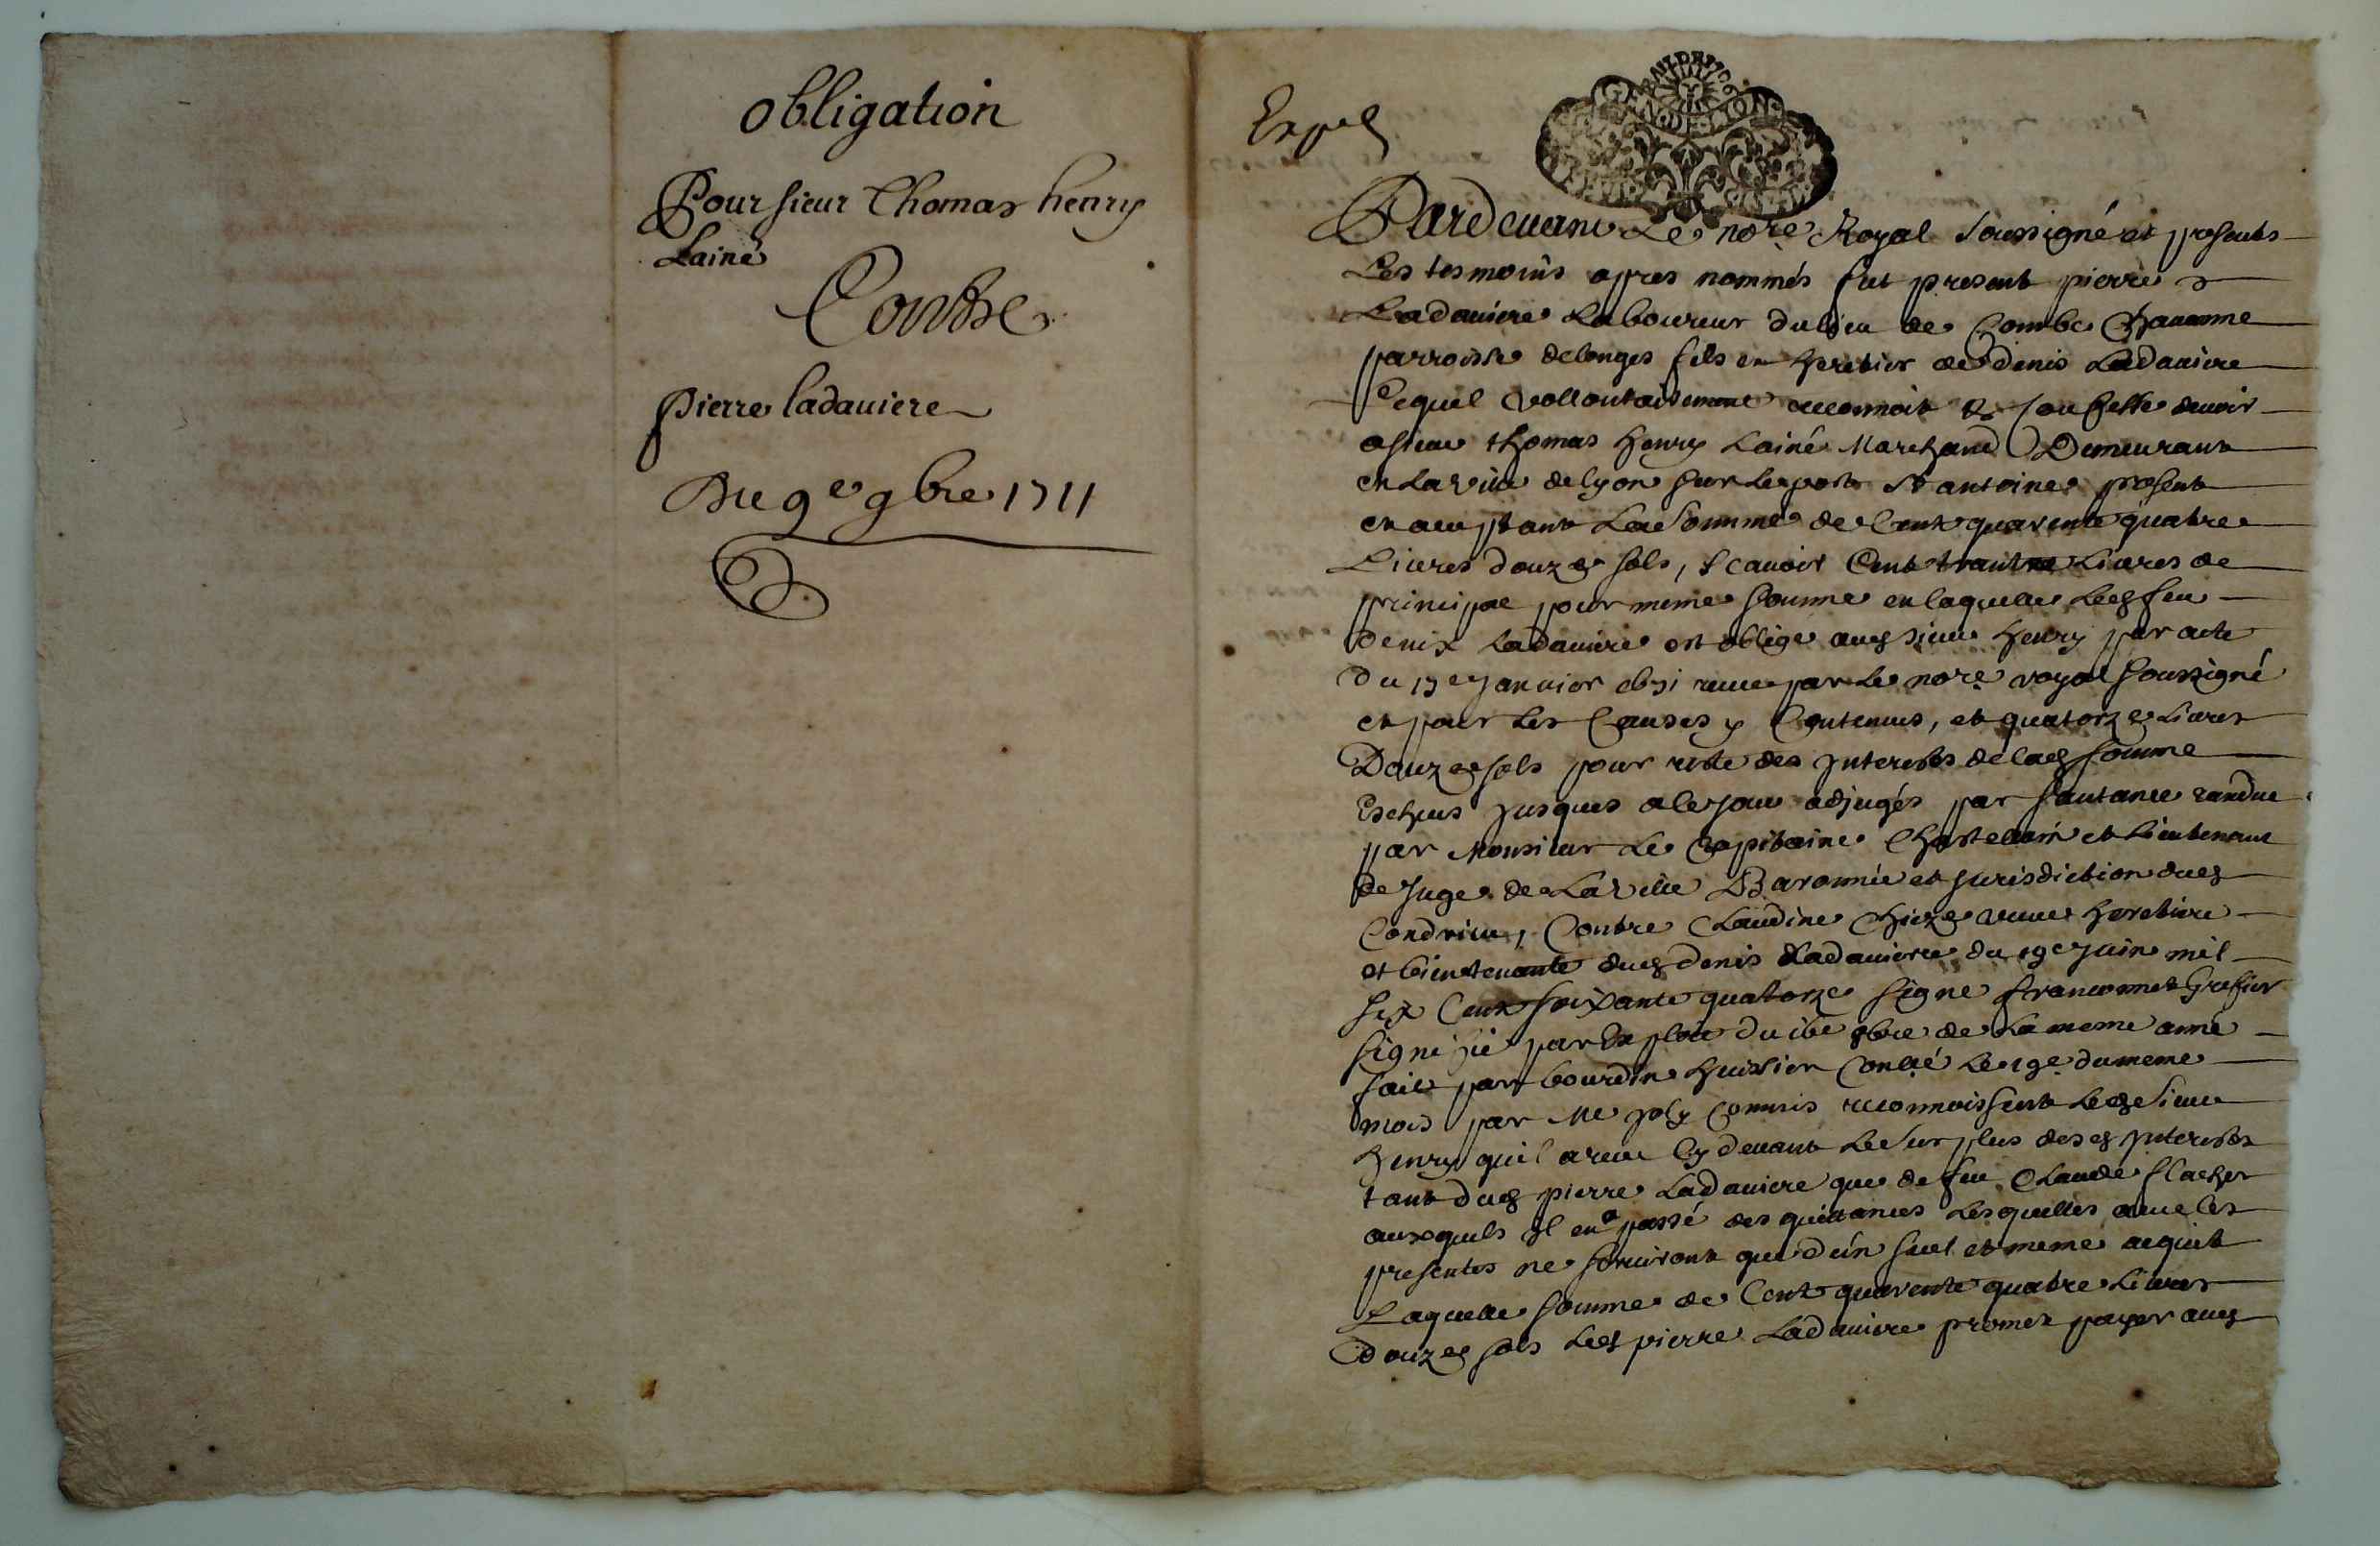 obligation
Pour sieur Thomas henry
Lainé
Contre
Pierre ladaviere
Du 9e 9bre 1711
Expé
Pardevant Le nore Royal soussigné et presents
Les tesmoins apres nommés fut present pierre
Ladaviere Laboureur du lieu de Combe
parroisse de longes fils et heretier de denis Ladaviere
Lequel vollontairement reconnoit & confesse devoir
a sieur thomas henry Lainé Marchand Demeurant
en La ville de lyon sur Le port St antoine present
et acceptant La somme de Cent quarente quatre
Livres douze sols, scavoir Cent trante Livres de
principal pour meme somme en laquelle Led feu
denis Ladaviere est obligé aud sieur henry par acte
du 17e Janvier receu par Le nore royal soussigné
et pour Les Causes y Contenues, et quatorze Livres
Douze sols pour reste des Interests de lad somme
Eschus Jusques a ce jour adjugés par santance randue
par Monsieur Le Capitaine Chastelain et Lieutenant
de Juge de La ville Baronnie et Jurisdiction dud
Condrieu, Contre Claudine veuve heretiere
et bientenante dud denis Ladaviere du 19e Juin mil
six Cent soixante quatorze signé franconnet Grefier
signifié par Exploit du 16e 8bre de La meme anné
fait par bourdin huissier Conllé Le 19e du meme
mois par Me Joly Commis reconnoissent Led sieur
henry qu'il a receu Cy devant Le surplus desd Interests
tant dud pierre Ladaviere que de feu Claude flacher
ausxquels Il en a passé des quittances Lesquelles avec les
presentes ne serviront que d'un seul et meme acquit
Laquelle somme de Cent quarente quatre Livres
douze sols Led pierre Ladaviere promet payer aud